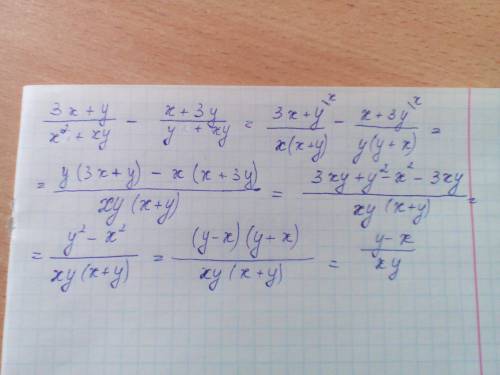 (3x+y)/(x²+xy) - (x+3y)/(y + xy) = (3x+y^x)/(x(x+y)) - (x+3y^x)/(y(y+x)) =
= (y(3x+y) - x(x+3y))/(xy(x+y)) = (3xy+y²-x²-3xy)/(xy(x+y)) =
= (y²-x²)/(xy(x+y)) = ((y-x)(y+x))/(xy(x+y)) = (y-x)/(xy)